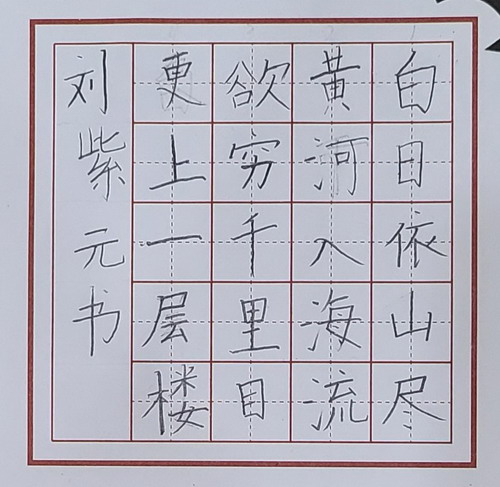 白日依山尽
黄河入海流
欲穷千里目
更上一层楼
刘紫元书